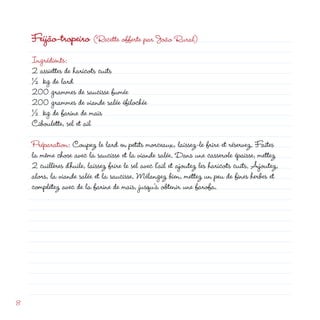 Feijão-tropeiro (Recette offerte par João Rural)
Ingrédients:
2 assiettes de haricots cuits
½ kg de lard
200 grammes de saucisse fumée
200 grammes de viande salée éfilochée
½ kg de farine de maïs
Ciboulette, sel et ail
Préparation: Coupez le lard en petits morceaux, laissez-le frire et réservez. Faites
la même chose avec la saucisse et la viande salée. Dans une casserole épaisse, mettez
2 cuillères d'huile, laissez frire le sel avec l'ail et ajoutez les haricots cuits. Ajoutez,
alors, la viande salée et la saucisse. Mélangez bien, mettez un peu de fines herbes et
complétez avec de la farine de maïs, jusqu'à obtenir une farofa.
8